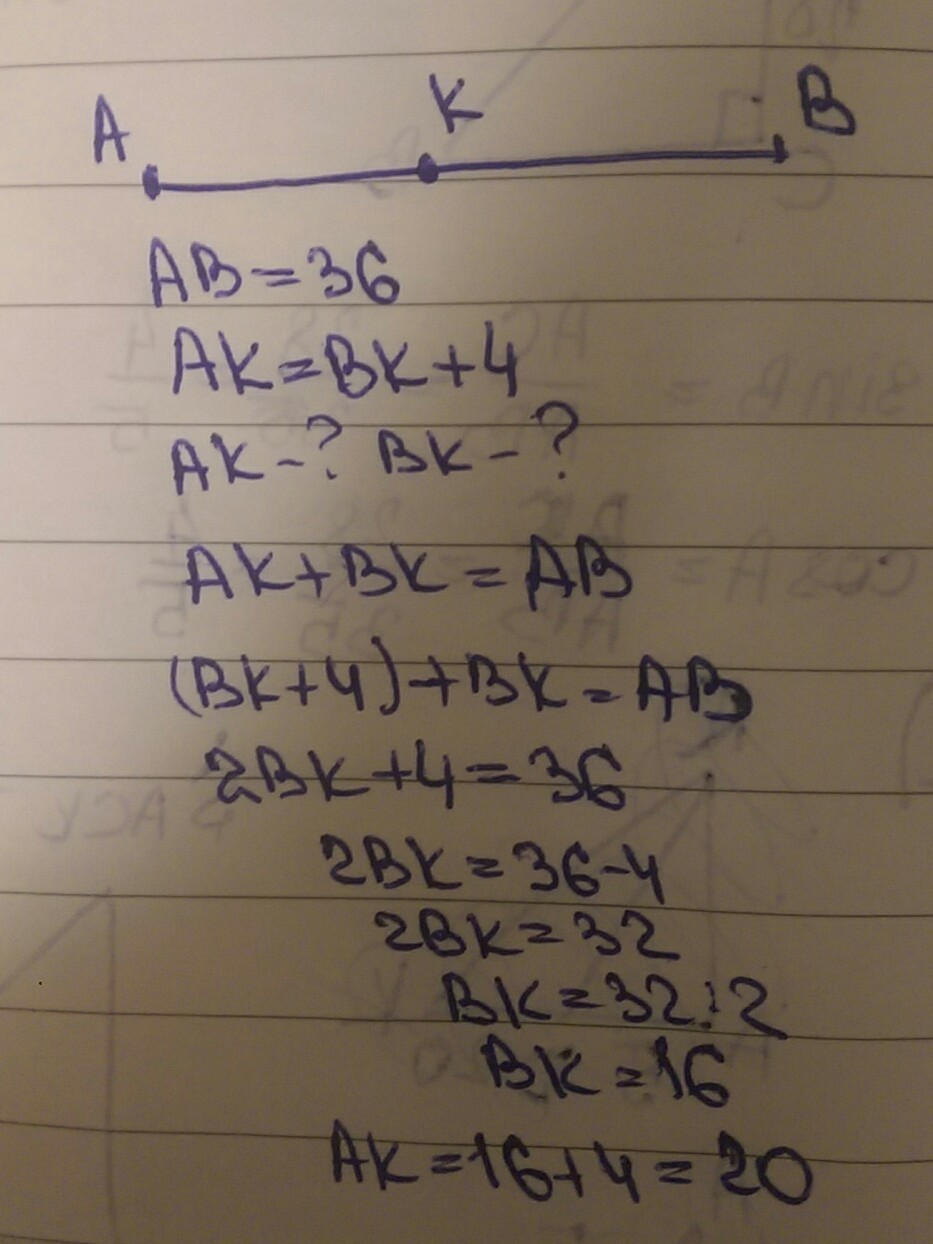 A K B
AB=36
AK=BK+4
AK-? BK-?
AK+BK=AB
(BK+4)+BK=AB
2BK+4=36
2BK=36-4
2BK=32
BK=32:2
BK=16
AK=16+4=20